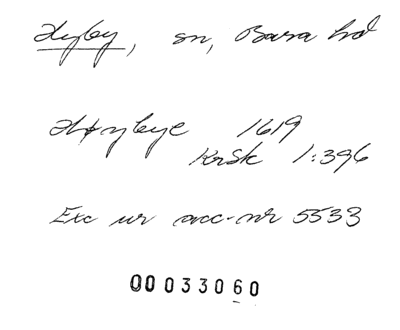 Hyby, sn, Bara hd
Høybye 1619
KrSk 1:396
Exc ur acc-nr 5533
00033060